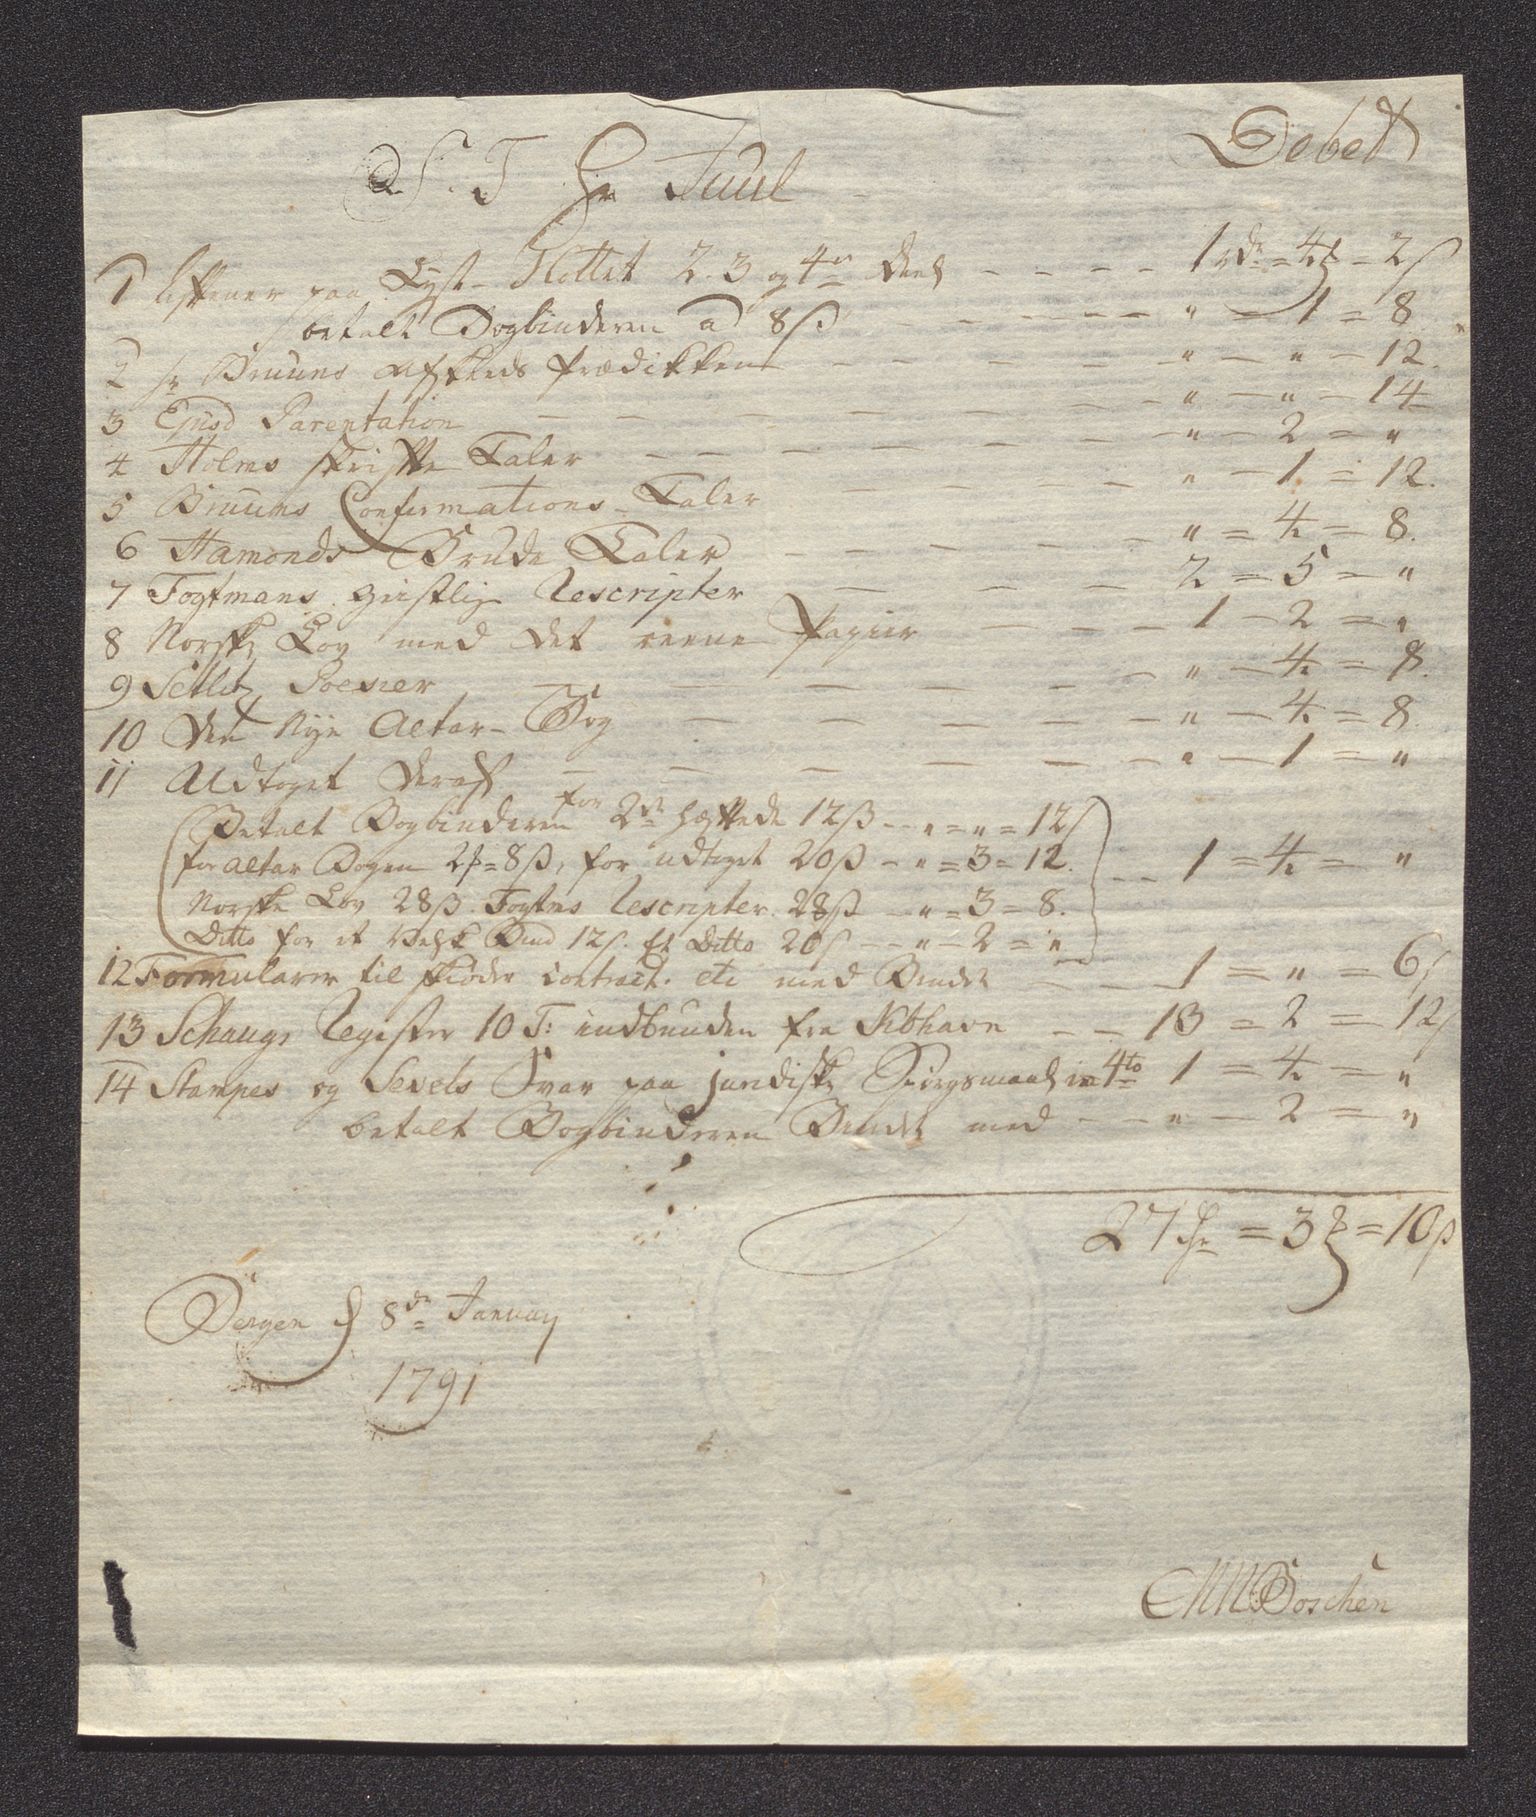 S. T. Hr Juul Debet
1 Aftener paa Lyst-Slottet 2. 3 og 4de Deel - - - - 1 rdr = 4 = 2 ß
betalt Bogbinderen a 8 ß - - - - - " = 1 = 8
2 Hr Bruuns Afskeds Prædikken - - - - " - " - 12.
3 Ejusd Parentation - - - - - - " - " = 14
4 Holms skrifte Taler - - - - - - " - 2 = "
5 Bruuns Confirmations-Taler - - - " - 1 = 12.
6 Hamonds Brude Taler - - - - " = 4 = 8.
7 Fogtmans Geistlige Rescripter - - - 2 = 5 = "
8 Norske Lov med det reene Papiir - - - 1 - 2 = "
9 Setlitz Poesier - - - - - " - 4 = 8.
10 Den Nye Altar-Bog - - - - - " - 4 = 8.
11 Udtoget deraf - - - - - " - 1 = "
Betalt Bogbinderen for 2de hæftede 12 ß - - " = " = 12 ß
for Altar Bogen 2 = 8 ß, for udtoget 20 ß - " = 3 = 12. - - 1 = 4 = "
Norske Lov 28 ß. Fogtms Rescripter. 28 ß - " = 3 = 8.
Ditto for et Bind 12 ß. Et Ditto 20 ß - - " - 2 = "
12 Formularer til skiøder contract. etc med Bindet - - - 1 = " = 6 ß
13 Schougs Register 10 T: indbunden fra Kbhavn - - 13 = 2 = 12 ß
14 Stampes og Sevels Svar paa juridiske Spörgsmaal in 4to 1 = 4 = "
betalt Bogbinderen Bindet med - - " - 2 = "
27 = 3 = 10 ß
Bergen d 8de Januarj
1791
Boschen